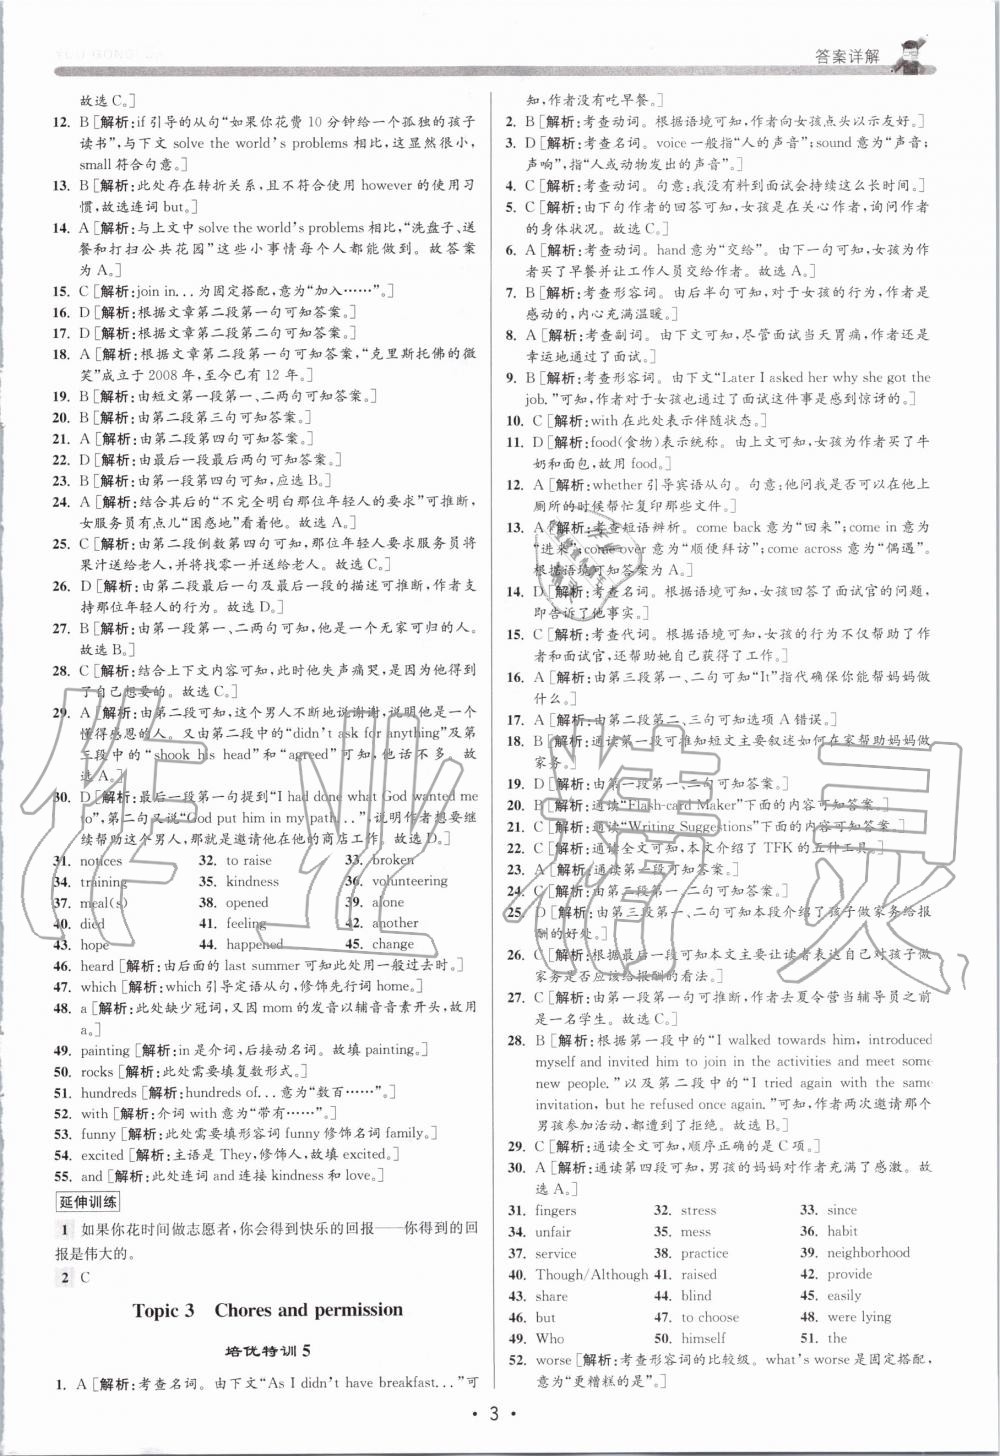 答案详解
故选C。]
12. B [解析:if引导的从句“如果你花费10分钟给一个孤独的孩子
读书”,与下文solve the world's problems相比,这显然很小,
small符合句意。]
13. B [解析:此处存在转折关系,且不符合使用however的使用习
惯,故选连词but。]
14. A [解析:与上文中solve the world's problems相比,“洗盘子、送
餐和打扫公共花园”这些小事情每个人都能做到。故答案
为A。]
15. C [解析:join in...为固定搭配,意为“加入……”。]
16. D [解析:根据文章第二段第一句可知答案。]
17. D [解析:根据文章第二段第二句可知答案。]
18. A [解析:根据文章第二段第一句可知答案,“克里斯托佛的微
笑”成立于2008年,至今已有12年。]
19. B [解析:由短文第一段第一、二两句可知答案。]
20. B [解析:由第二段第三句可知答案。]
21. A [解析:由第二段第四句可知答案。]
22. D [解析:由最后一段最后两句可知答案。]
23. B [解析:由第一段第四句可知,应选B。]
24. A [解析:结合其后的“不完全明白那位年轻人的要求”可推断,
女服务员有点儿“困惑地”看着他。故选A。]
25. C [解析:由第二段倒数第四句可知,年轻人要求服务员将
果汁送给老人,并将找零一并送给老人。故选C。]
26. D [解析:由第二段最后一句及最后一段的描述可推断,作者支
持那位年轻人的行为。故选D。]
27. B [解析:由第一段第一、二两句可知,他是一个无家可归的人。
故选B。]
28. C [解析:结合上下文内容可知,此时他失声痛哭,是因为他得到
了自己想要的。故选C。]
29. A [解析:由第二段可知,这个男人不断地说谢谢,说明他是一个
懂得感恩的人。又由第二段中的“didn't ask for anything”及第
三段中的“shook his head”和“agreed”可知,他话不多。故
选A。]
30. D [解析:最后一段第一句提到“I had done what God wanted me
to”,第二句又说“God put him in my path...”,说明作者想要继
续帮助这个男人,那就是邀请他在他的商店工作。故选D。]
31. notices 32. to raise 33. broken
34. training 35. kindness 36. volunteering
37. meal(s) 38. opened 39. alone
40. died 41. feeling 42. another
43. hope 44. happened 45. change
46. heard [解析:由后面的last summer可知此处用一般过去时。]
47. which [解析:which引导定语从句,修饰先行词home。]
48. a [解析:此处缺少冠词,又因mom的发音以辅音音素开头,故用
a。]
49. painting [解析:in是介词,后接动名词。故填painting。]
50. rocks [解析:此处需要填复数形式。]
51. hundreds [解析:hundreds of...意为“数百……”。]
52. with [解析:介词with意为“带有……”。]
53. funny [解析:此处需要填形容词funny修饰名词family。]
54. excited [解析:主语是They,修饰人,故填excited。]
55. and [解析:此处连词and连接kindness and love。]
延伸训练
1 如果你花时间做志愿者,你会得到快乐的回报——你得到的回
报是伟大的。
2 C
Topic 3 Chores and permission
培优特训5
1. A [解析:考查名词。由下文“As I didn't have breakfast...”可
知,作者没有吃早餐。]
2. B [解析:考查动词。根据语境可知,作者向女孩点头以示友好。]
3. D [解析:考查名词。voice一般指“人的声音”;sound意为“声音;
声响”,指“人或动物发出的声音”。]
4. C [解析:考查动词。句意:我没有料到面试会持续这么长时间。]
5. C [解析:由下句作者的回答可知,女孩是在关心作者,询问作者
的身体状况。故选C。]
6. A [解析:考查动词。hand意为“交给”。由下一句可知,女孩为作
者买了早餐并让工作人员交给作者。故选A。]
7. B [解析:考查形容词。由后半句可知,对于女孩的行为,作者是
感动的,内心充满温暖。]
8. A [解析:考查副词。由下文可知,尽管面试当天胃痛,作者还是
幸运地通过了面试。]
9. B [解析:考查形容词。由下文“Later I asked her why she got the
job.”可知,作者对于女孩也通过了面试这件事是感到惊讶的。]
10. C [解析:with在此处表示伴随状态。]
11. D [解析:food(食物)表示统称。由上文可知,女孩为作者买了牛
奶和面包,故用food。]
12. A [解析:whether引导宾语从句。句意:他问我是否可以在他上
厕所的时候帮忙复印那些文件。]
13. A [解析:考查短语辨析。come back意为“回来”;come in意为
“进来”;come over意为“顺便拜访”;come across意为“偶遇”。
根据语境可知答案为A。]
14. D [解析:考查名词。根据语境可知,女孩回答了面试官的问题,
即告诉了他事实。]
15. C [解析:考查代词。根据语境可知,女孩的行为不仅帮助了作
者和面试官,还帮助她自己获得了工作。]
16. A [解析:由第三段第一、二句可知“It”指代确保你能帮妈妈做
什么。]
17. A [解析:由第二段第二、三句可知选项A错误。]
18. B [解析:通读第一段可推知短文主要叙述如何在家帮助妈妈做
家务。]
19. D [解析:由第一段第一、二句可知答案。]
20. B [解析:通读“Flash-card Maker”下面的内容可知答案。]
21. C [解析:通读“Writing Suggestions”下面的内容可知答案。]
22. C [解析:通读全文可知,本文介绍了TFK的五种工具。]
23. A [解析:通读第一段可知答案。]
24. C [解析:由第二段第一、二句可知答案。]
25. D [解析:由第三段第一、二句可知本段介绍了孩子做家务给报
酬的好处。]
26. C [解析:根据最后一段可知本文主要让读者表达自己对孩子做
家务是否应该给报酬的看法。]
27. C [解析:由第一段第一句可推断,作者去夏令营当辅导员之前
是一名学生。故选C。]
28. B [解析:根据第一段中的“I walked towards him, introduced
myself and invited him to join in the activities and meet some
new people.”以及第二段中的“I tried again with the same
invitation, but he refused once again.”可知,作者两次邀请那个
男孩参加活动,都遭到了拒绝。故选B。]
29. C [解析:通读全文可知,顺序正确的是C项。]
30. A [解析:通读第四段可知,男孩的妈妈对作者充满了感激。故
选A。]
31. fingers 32. stress 33. since
34. unfair 35. mess 36. habit
37. service 38. practice 39. neighborhood
40. Though/Although 41. raised 42. provide
43. share 44. blind 45. easily
46. but 47. to choose 48. were lying
49. Who 50. himself 51. the
52. worse [解析:考查形容词的比较级。what's worse是固定搭配,
意为“更糟糕的是”。]
· 3 ·
作业精灵